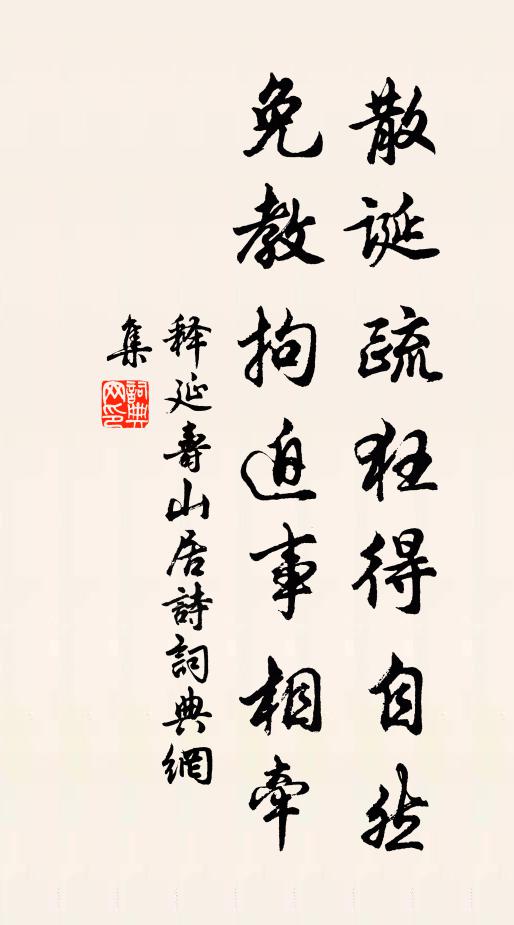 散誕疏狂得自然
免教拘迫事相牽
释延壽山居詩詞典網
集
詞典
网印